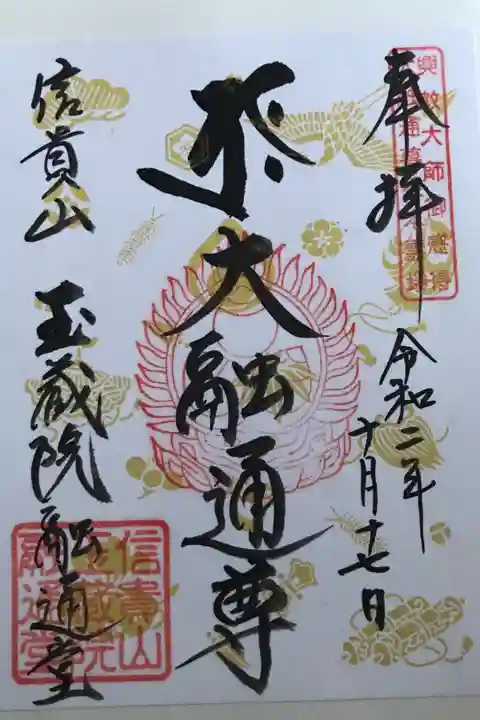 奉拝
令和二年
十月十七日
興教大師御感得
大融通尊
信貴山 玉蔵院融通堂
信貴山
玉蔵院
融通堂